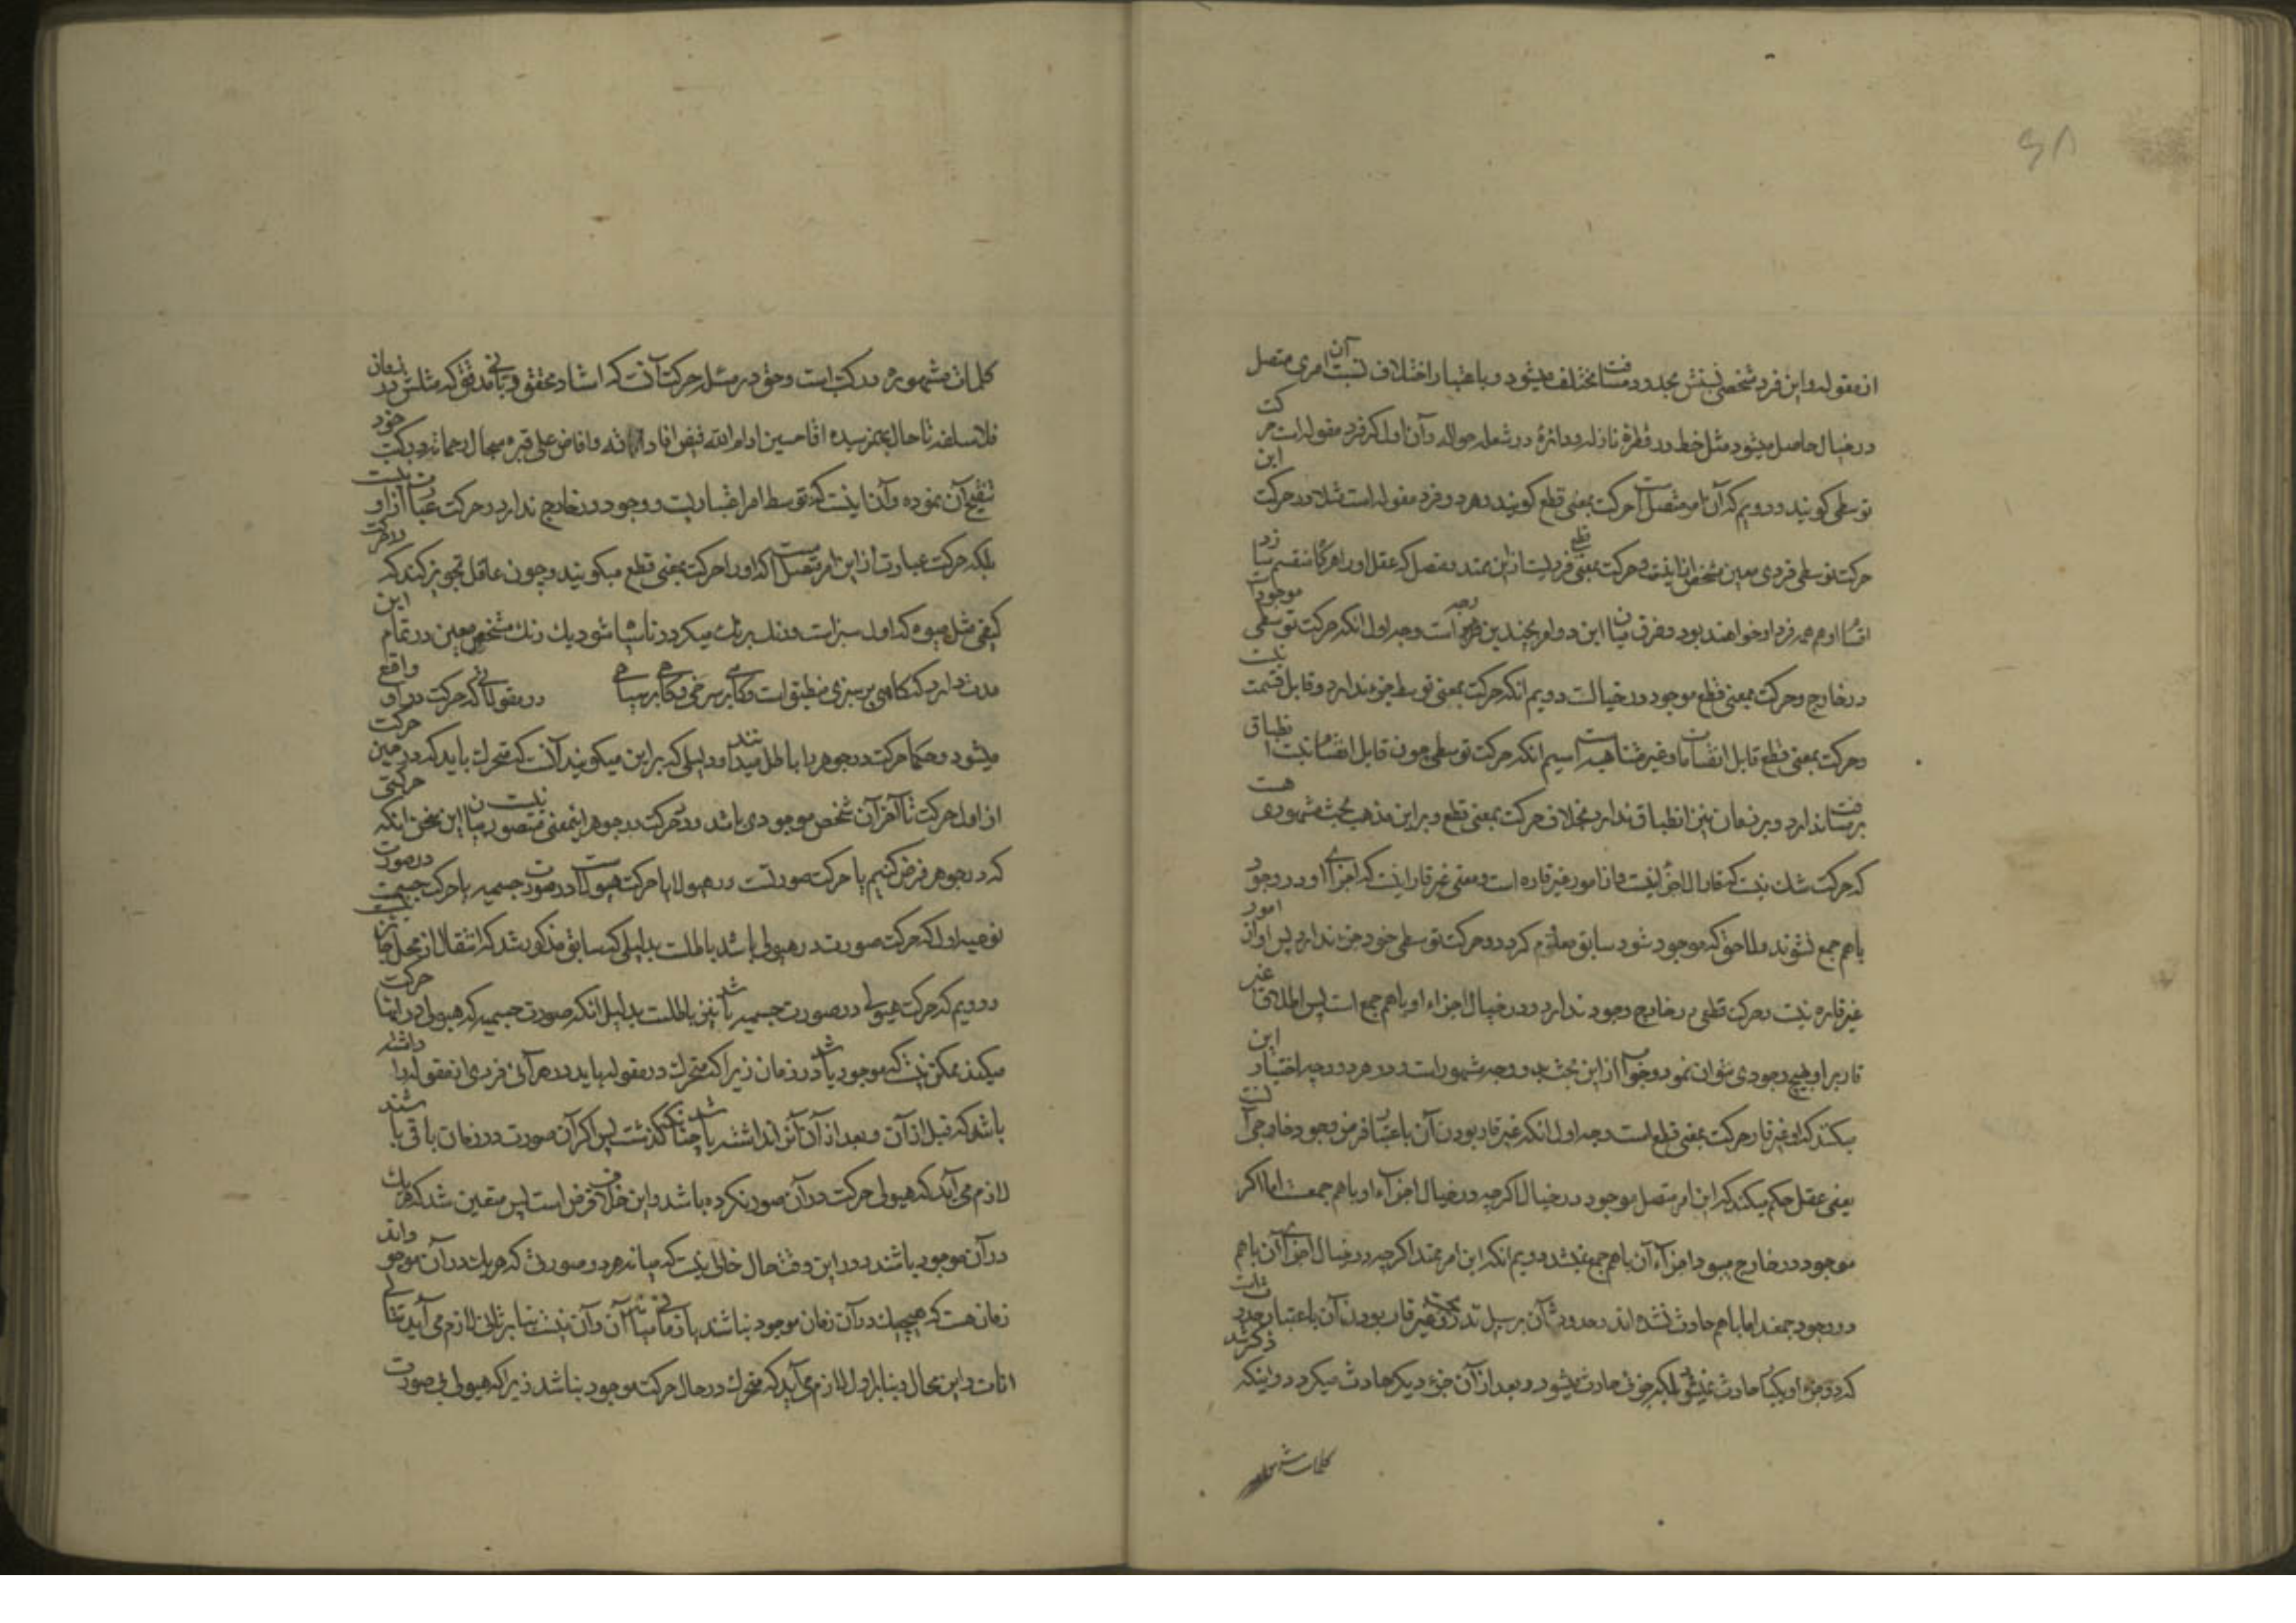 ۶۸
از مقوله و این فرد شخصی نسبتش بحدود مسافت مختلف میشود و باعتبار اختلاف نسبت آن امری متصل
در خیال حاصل میشود مثل خط در قطرهٔ نازله و دائرهٔ در شعلهٔ جواله و آن اول که فرد مقوله است حرکت
توسطی گویند و دویم که آن امر متصل است حرکت بمعنی قطع گویند و هر دو فرد مقوله است مثلا در حرکت این
حرکت توسطی فردی معین مشخص از اینست و حرکت بمعنی قطع فردیست از این ممتد و متصل که عقل او را هر گاه منقسم سازد
اقسام او هم همه فرد او خواهند بود و فرق میان این دو امر بچندین وجه است وجه اول انکه حرکت توسطی موجود است
در خارج و حرکت بمعنی قطع موجود در خیالست دویم انکه حرکت بمعنی توسط جزء ندارد و قابل قسمت نیست
و حرکت بمعنی قطع قابل انقسامات غیر متناهیه است سیم انکه حرکت توسطی چون قابل انقسام نیست انطباق
بر مسافت ندارد و بر زمان نیز انطباق ندارد بخلاف حرکت بمعنی قطع و بر این مذهب بحث مشهوری هست
که حرکت شک نیست که قار الاجزا نیست و از امور غیر قاره است و معنی غیر قار اینست که اجزای او در وجود
با هم جمع نشوند و لاحق که موجود شود سابق معدوم گردد و حرکت توسطی خود جزء ندارد پس او از امور
غیر قاره نیست و حرکت قطعی در خارج وجود ندارد و در خیال اجزاء او با هم جمع است پس اطلاق غیر
قار بر او بهیچ وجودی نتوان نمود و جواب از این بحث بدو وجه مشهور است و در هر دو وجه اختیار این
میکنند که او غیر قار حرکت بمعنی قطع است وجه اول انکه غیر قار بودن آن باعتبار فرض وجود خارجی آنست
یعنی عقل حکم میکند که این امر متصل موجود در خیال اگرچه در خیال اجزاء او با هم جمعست اما اگر
موجود در خارج میبود اجزاء آن با هم جمع نمیشد دویم انکه این امر ممتد اگرچه در خیال اجزای آن با هم
در وجود جمعند اما با هم حادث نشده اند و حدوث آن بر سبیل تدریجست و غیر قار بودن آن باعتبار حدوثست
که دو جزء او یکبار حادث نمیشود بلکه جزئی حادث میشود و بعد از آن جزء دیگر حادث میگردد و اینکه ذکر شد
کلمات مشهوره
کلمات مشهوره در کتب است و حق در مسئله حرکت آنست که استاد محقق و ربانی مدقق که مثلش در زمان
فلاسفه تا حال بعرصه نرسیده اقا حسین ادام الله فیض افاداته و افاض علی قبره سجال رحماته در کتب خود
تنقیح آن نموده و آن اینست که توسط امر اعتباریست و وجود در خارج ندارد و حرکت عبارت از او نیست
بلکه حرکت عبارت از این امر متصل است که او را حرکت بمعنی قطع میگویند و چون عاقل تجویز کند که در حرکت
کیفی مثل میوه که اول سبز است و رنگ برنگ میگردد تا سیاه شود یک رنگ مشخص معین در تمام این
مدت دارد که گاهی بر سبزی منطبق است و گاهی بر سرخی و گاهی بر سیاهی در مقولاتی که حرکت در او واقع
میشود و حکما حرکت در جوهر را باطل میدانند و دلیلی که بر این میگویند آنست که متحرک باید که در حین حرکت
از اول حرکت تا آخر آن شخص موجودی باشد و در حرکت در جوهر اینمعنی متصور نیست بیان این سخن انکه حرکتی
که در جوهر فرض کنیم یا حرکت صورتست در هیولا یا حرکت هیولاست در صورت جسمیه یا حرکت جسمست در صورت
نوعیه اول که حرکت صورت در هیولی باشد باطلست بدلیلی که سابق مذکور شد که انتقال از محل جایز نیست
دویم که حرکت هیولی در صورت جسمیه باشد نیز باطلست بدلیل انکه صورت جسمیه که هیولی در آنها حرکت
میکند ممکن نیست که موجود باشد در زمان زیرا که متحرک در مقوله باید در هر آنی فردی از مقوله را داشته
باشد که قبل از آن و بعد از آن آنرا نداشته باشد چنانکه گذشت پس اگر آن صورت در زمان باقی باشند
لازم می آید که هیولی حرکت در آن صور نکرده باشد و این خلاف فرض است پس متعین شد که هر یک
در آن موجود باشند و در این وقت حال خالی نیست که میانه هر دو صورتی که هر یک در آن موجودند
زمان هست که هیچیک در آن زمان موجود نباشند یا زمانی میان آن و آن نیست بنا بر ثانی لازم می آید تتالی
انات و این محال و بنا بر اول لازم می آید که متحرک در حال حرکت موجود نباشد زیرا که هیولی بی صورت